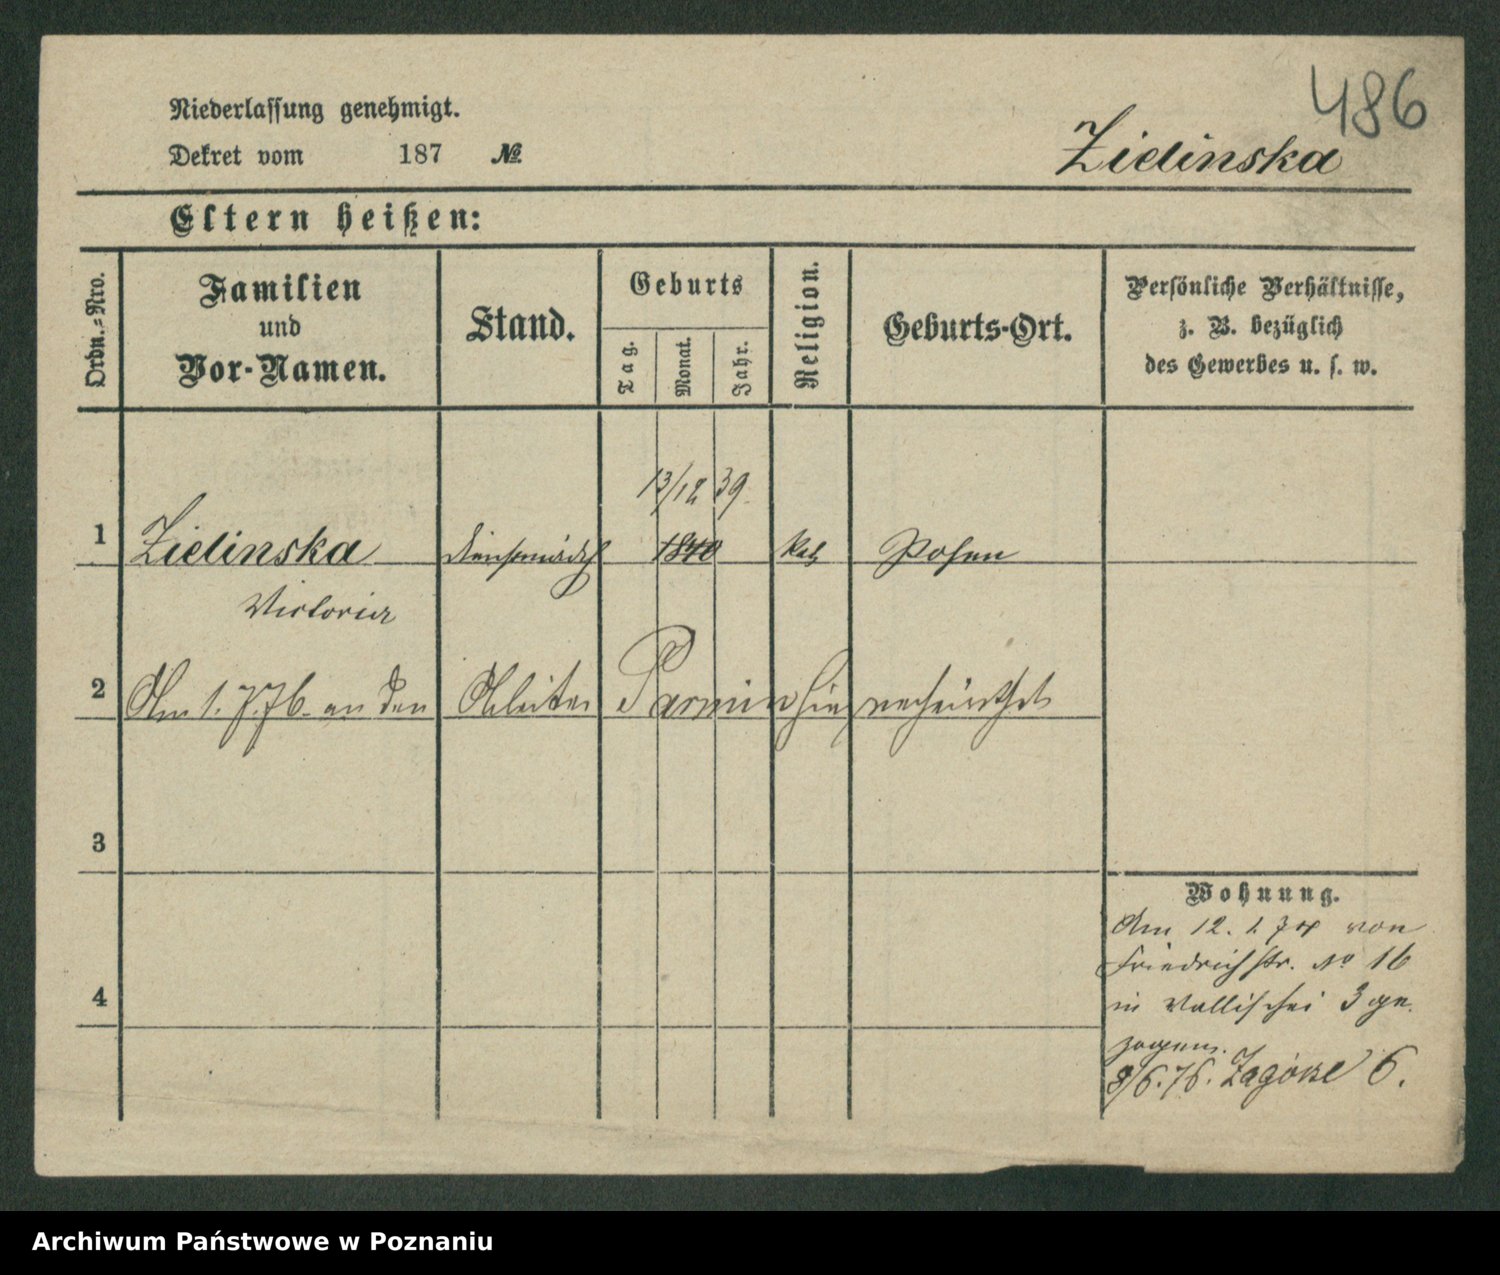 486
Niederlassung genehmigt.
Dekret vom 187 №
Zielinska
Eltern heißen:
Ordn.-Nro.
Familien
und
Vor-Namen.
Stand.
Geburts
Tag.
Monat.
Jahr.
Religion.
Geburts-Ort.
Persönliche Verhältnisse,
z. B. bezüglich
des Gewerbes u. s. w.
13/12 39
1 Zielinska 1840 Kath Posen
Victoria
2 Am 1.7.76. an den Arbeiter hier verheirathet
3
4
Wohnung.
Am 12. 1 74 von
Friedrichstr. No 16
in Wallischei 3 ge
zogen.
8/6.76. Zagórze 6.
Archiwum Państwowe w Poznaniu